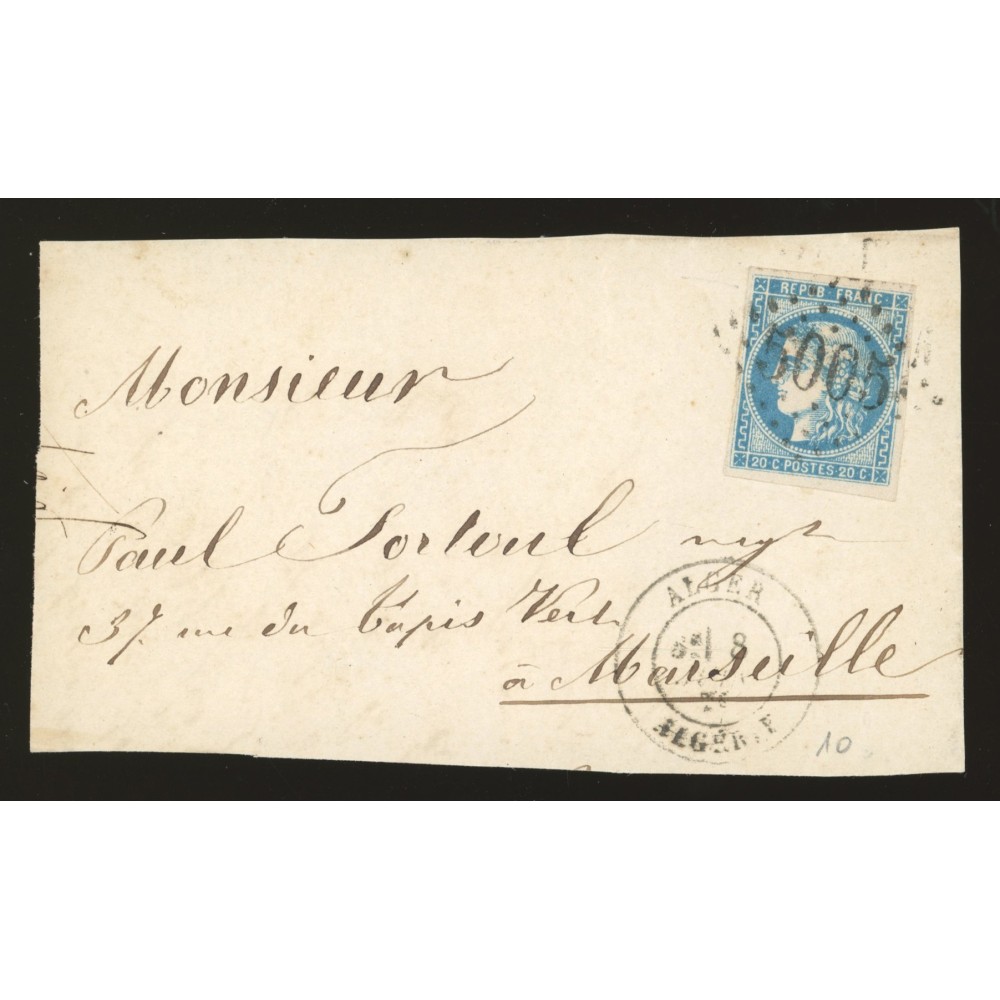 REPUB. FRANC.
5005
20 C POSTES 20 C
Monsieur
Paul Fortoul negt
37 rue du tapis Vert
à Marseille
ALGER
8
ALGERIE
10